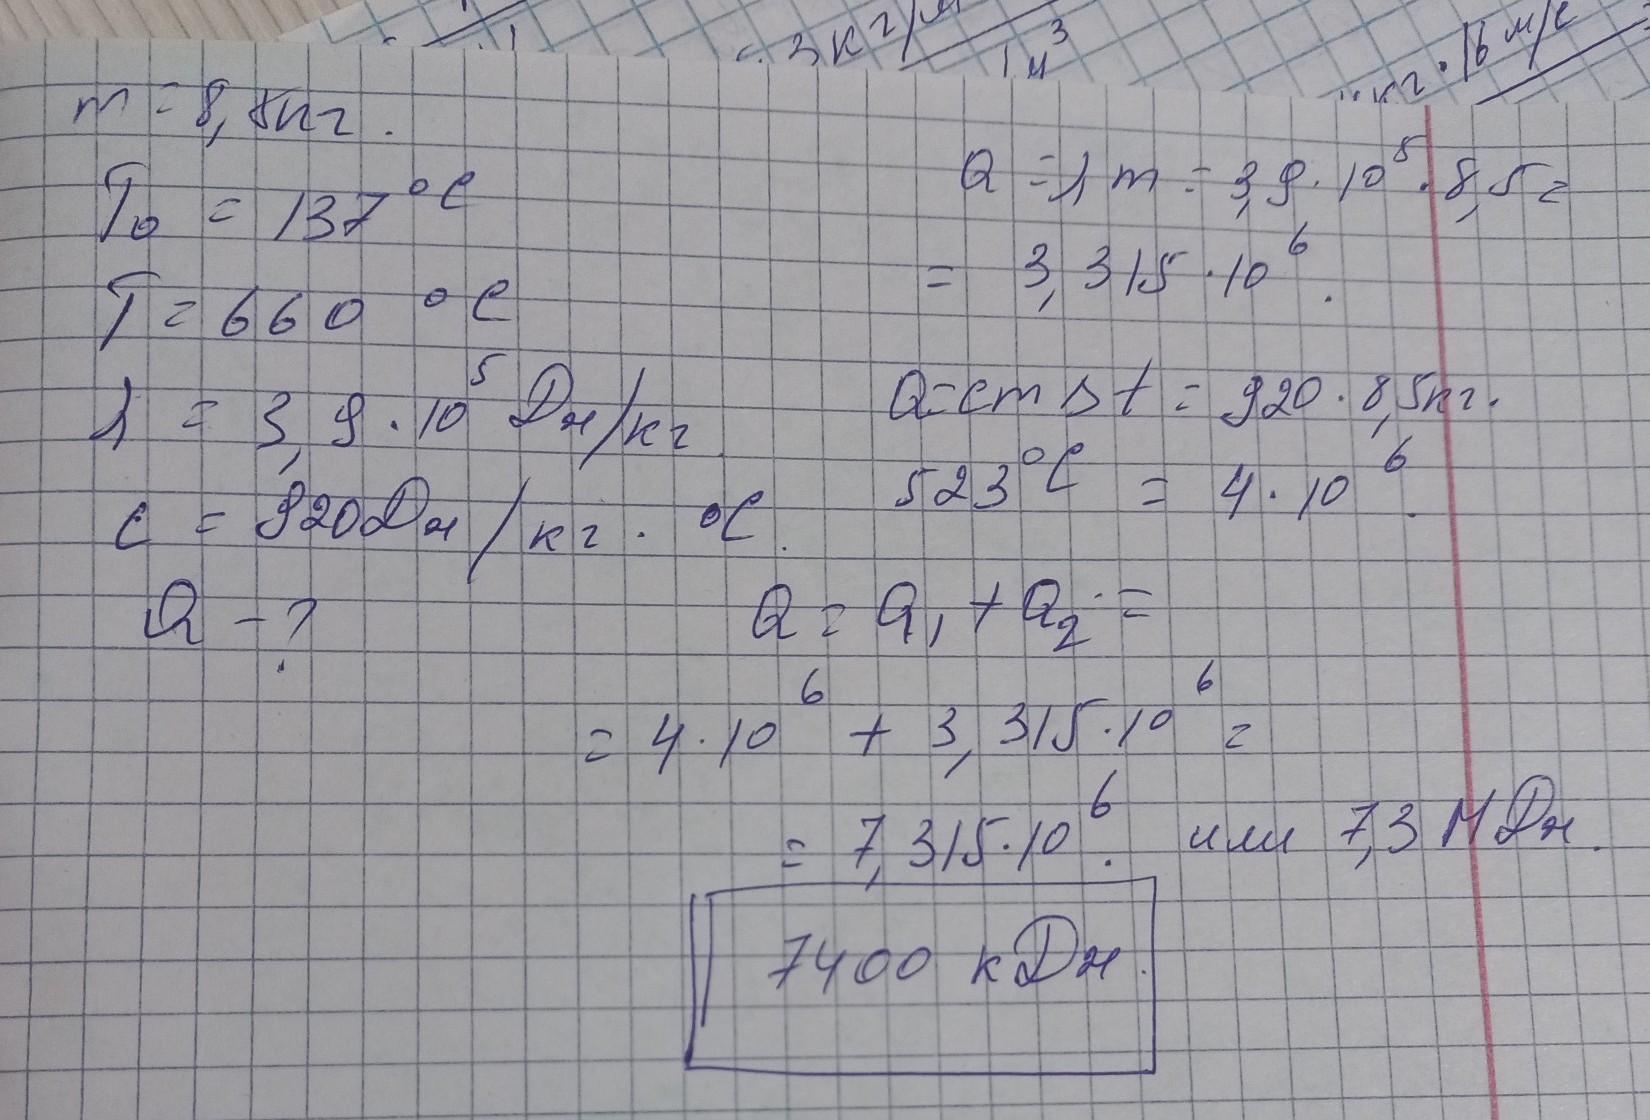 3кг/м
1м³
кг · 16 м/с
m = 8,5кг.
T₀ = 137 °C
T = 660 °C
λ = 3,9 · 10⁵ Дж/кг
c = 920Дж/кг · °C.
Q - ?
Q = λ m = 3,9 · 10⁵ · 8,5 =
= 3,315 · 10⁶.
Q=cmΔt = 920 · 8,5кг.
523°C = 4 · 10⁶.
Q = Q₁ + Q₂ =
= 4 · 10⁶ + 3,315 · 10⁶ =
= 7,315 · 10⁶. или 7,3 МДж.
7400 кДж.